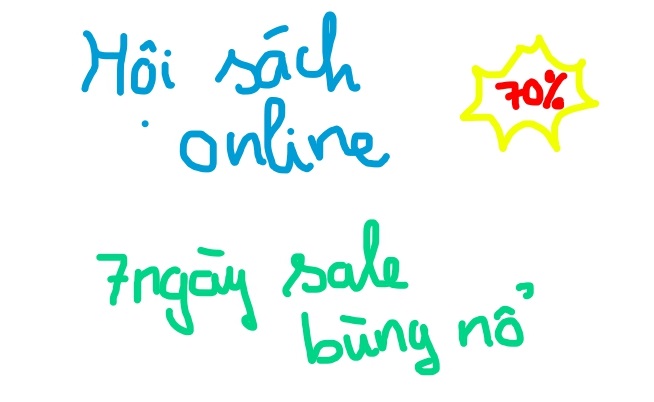 Hội sách
online
70%
7 ngày sale
bùng nổ